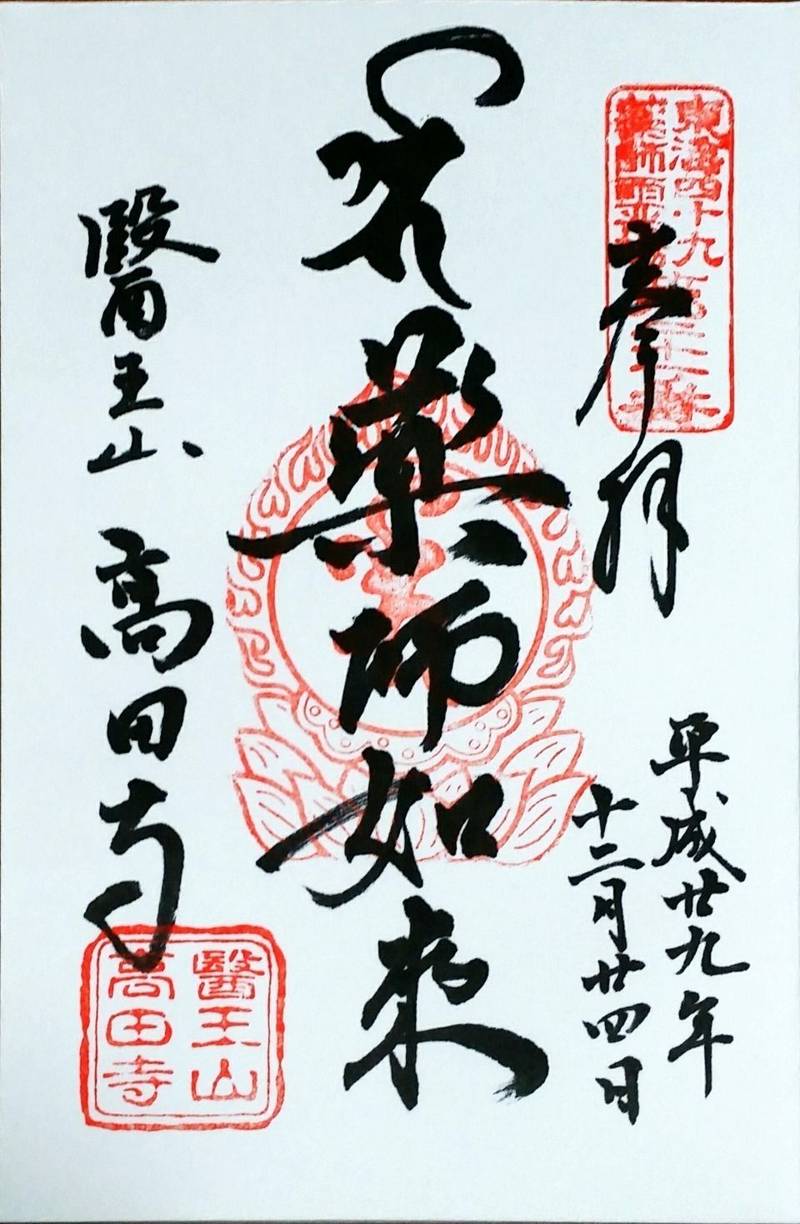 東海四十九
薬師霊場
奉拝
平成廿九年
十二月廿四日
薬師如来
醫王山 高田寺
醫王山
高田寺